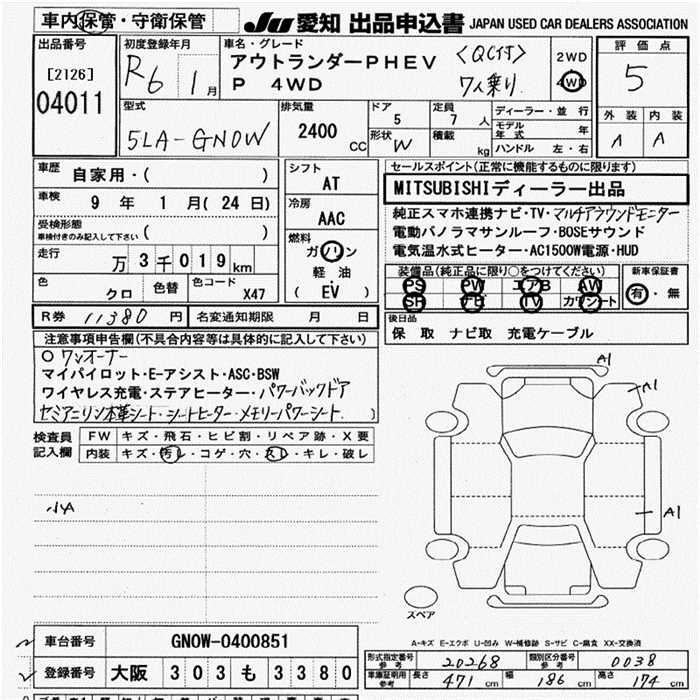 車内保管・守衛保管
JU 愛知 出品申込書 JAPAN USED CAR DEALERS ASSOCIATION
出品番号
[2126]
04011
初度登録年月
R6 1 月
車名・グレード
アウトランダーPHEV 〈QC付〉
P 4WD 7人乗り
2WD
4WD
評価点
5
外装 内装
A A
型式
5LA-GN0W
排気量
2400 CC
ドア
5
形状 W
定員
7 人
積載 kg
ディーラー・並行
モデル年式 年
ハンドル 左・右
車歴
自家用・( )
車検
9 年 1 月(24日)
受検形態
車検付きのみ記入して下さい ( )
走行
万 3 千 0 1 9 km
色
クロ
色替
色コード
X47
シフト
AT
冷房
AAC
燃料
ガソリン
軽油
( EV )
セールスポイント(正常に機能するものに限ります)
MITSUBISHIディーラー出品
純正スマホ連携ナビ・TV・マルチアラウンドモニター
電動パノラマサンルーフ・BOSEサウンド
電気温水式ヒーター・AC1500W電源・HUD
装備品(純正品に限り○をつけてください)
PS PW エアB AW
SR ナビ TV カワシート
新車保証書
有・無
R券 11380 円
名変通知期限 月 日
後日品
保 取 ナビ取 充電ケーブル
注意事項申告欄(不具合内容等は具体的に記入して下さい)
○ワンオーナー
マイパイロット・E-アシスト・ASC・BSW
ワイヤレス充電・ステアヒーター・パワーバックドア
セミアニリン本革シート・シートヒーター・メモリーパワーシート )
検査員記入欄
FW キズ・飛石・ヒビ割・リペア跡・X要
内装 キズ・汚レ・コゲ・穴・スレ・キレ・破レ
A1
A1
A1
スペア
A-キズ E-エクボ U-凹み W-補修跡 S-サビ C-腐食 XX-交換済
車台番号 GN0W-0400851
登録番号 大阪 303 も 3380
型式指定番号 参考 20268
類別区分番号 参考 0038
車庫証明用 参考 長さ 471 cm 幅 186 cm 高さ 174 cm